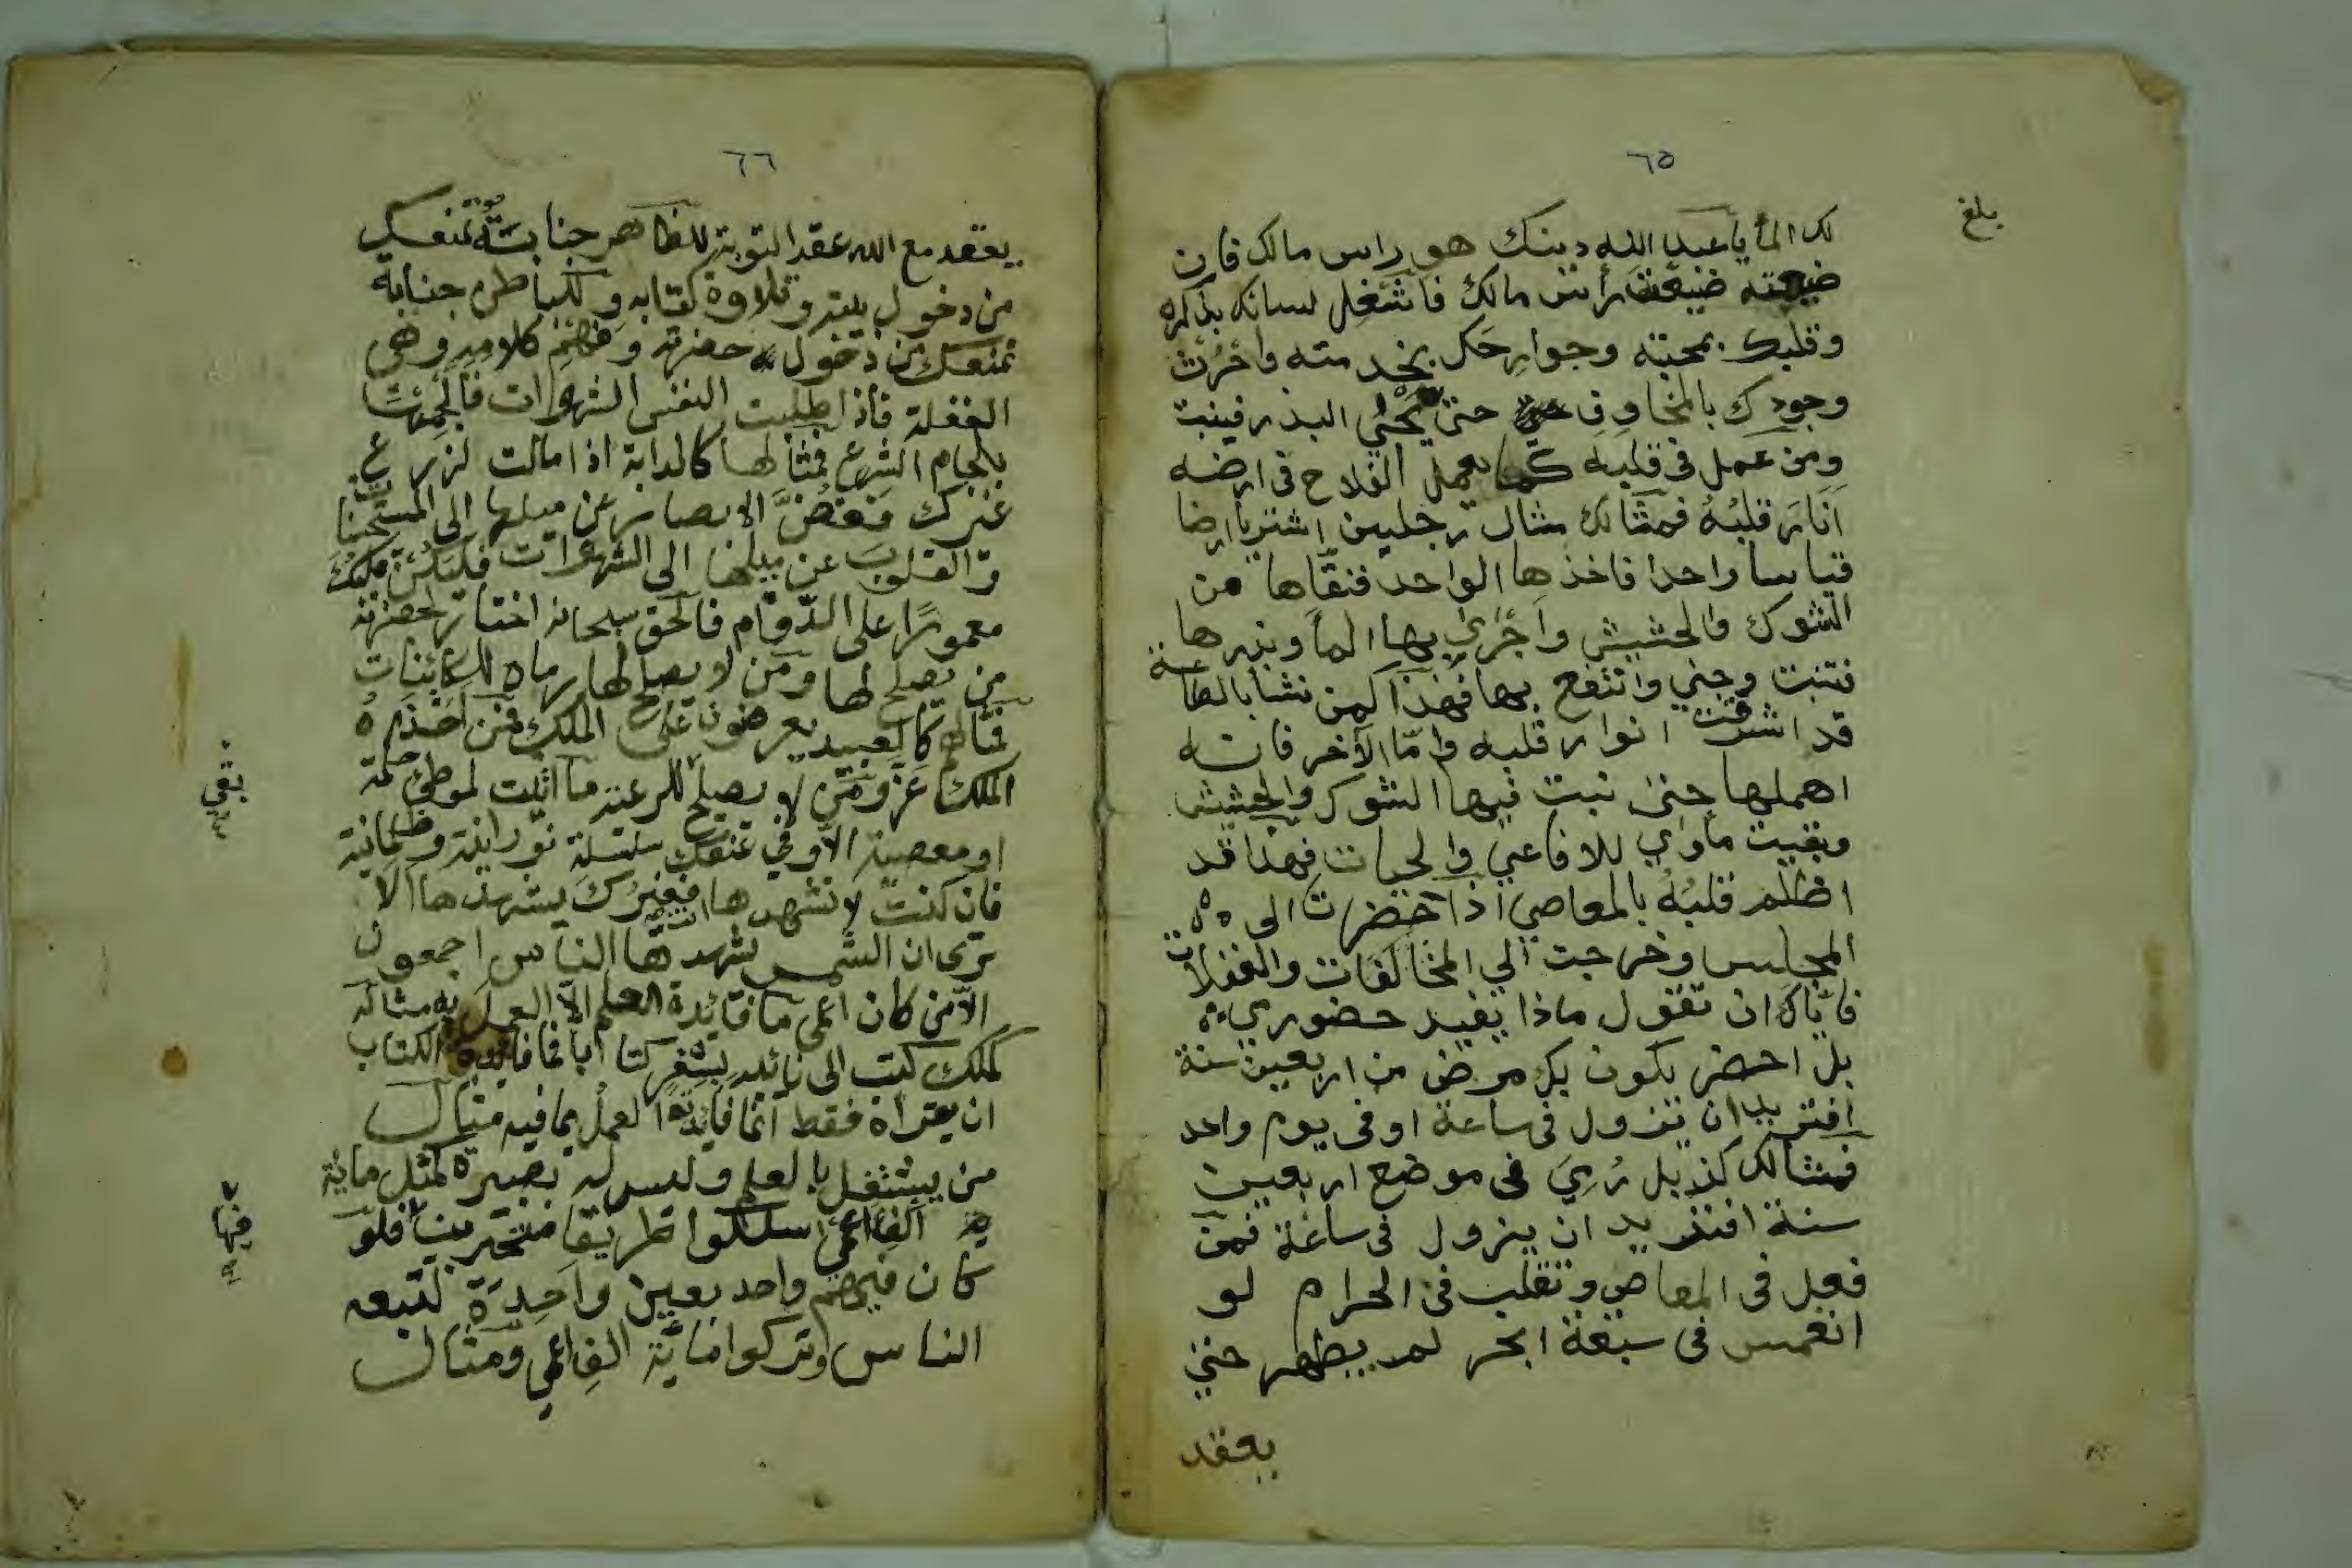 ٦٥
بلغ
لك الما يا عبد الله دينك هو راس مالك فان
ضيعته ضيعت رأس مالك فاشغل لسانك بذكره
وقلبك بمحبته وجوارحك بخدمته واحرث
وجودك بالمخاوف حتى يجي البذر فينبت
ومن عمل في قلبه كما يعمل الفلاح في ارضه
انار قلبه فمثالك مثال رجلين اشتريا ارضا
قياسا واحدا فاخذها الواحد فنقاها من
الشوك والحشيش واجرى بها الما وبذرها
فنبتت وجني وانتفع بها فهذا كمن نشا بالطاعة
قد اشرقت انوار قلبه واما الآخر فانه
اهملها حتى نبت فيها الشوك والحشيش
وبقيت مأوي للافاعي والحيات فهذا قد
اظلم قلبه بالمعاصي اذا حضرت الى
المجلس وخرجت الي المخالفات والغفلات
فاياك ان تقول ماذا يفيد حضوري
بل احضر يكون بك مرض من اربعين سنة
افتريد ان يزول في ساعة او في يوم واحد
فمثالك كذبل رمي في موضع اربعين
سنة افتريد ان يزول في ساعة فمن
فعل في المعاصي وتقلب في الحرام لو
انغمس في سبعة ابحر لم يطهر حتى
يعقد
٦٦
يعقد مع الله عقد التوبة للظاهر جنابة تمنعك
من دخول بيته وتلاوة كتابه وللباطن جنابة
تمنعك من دخول حضرته وفهم كلامه وهي
الغفلة فاذا طلبت النفس الشهوات فألجمها
بلجام الشرع فمثالها كالدابة اذا مالت لزرع
غيرك فغض الابصار عن ميلها الى المستحسنات
والقلوب عن ميلها الى الشهوات فليكن قلبك
معمورا على الدوام فالحق سبحانه اختار لحضرته
من يصلح لها ومن لا يصلح لها رماه للكائنات
فمثالهم كالعبيد يعرضون على الملك فمن اخذه
الملك عز ومن لا يصلح للرعية ما اتيت لموطئ حكمة
او معصية الا وفي عنقك سلسلة نورانية وظلمانية
فان كنت لا تشهدها فغيرك يشهدها الا
ترى ان الشمس تشهدها الناس اجمعون
الا من كان اعمى ما فائدة العلم الا العمل به مثاله
كملك كتب الى نائبه بثغر كتابا فما فائدة الكتاب
ان يقراه فقط انما فائدته العمل بما فيه مثال
من يشتغل بالعلم وليس له بصيرة كمثل ماية
الف اعمى سلكوا طريقا متحيرين فلو
كان فيهم واحد بعين واحدة لتبعه
الناس وتركوا ماية الف اعمي ومثال
بقي
فيها